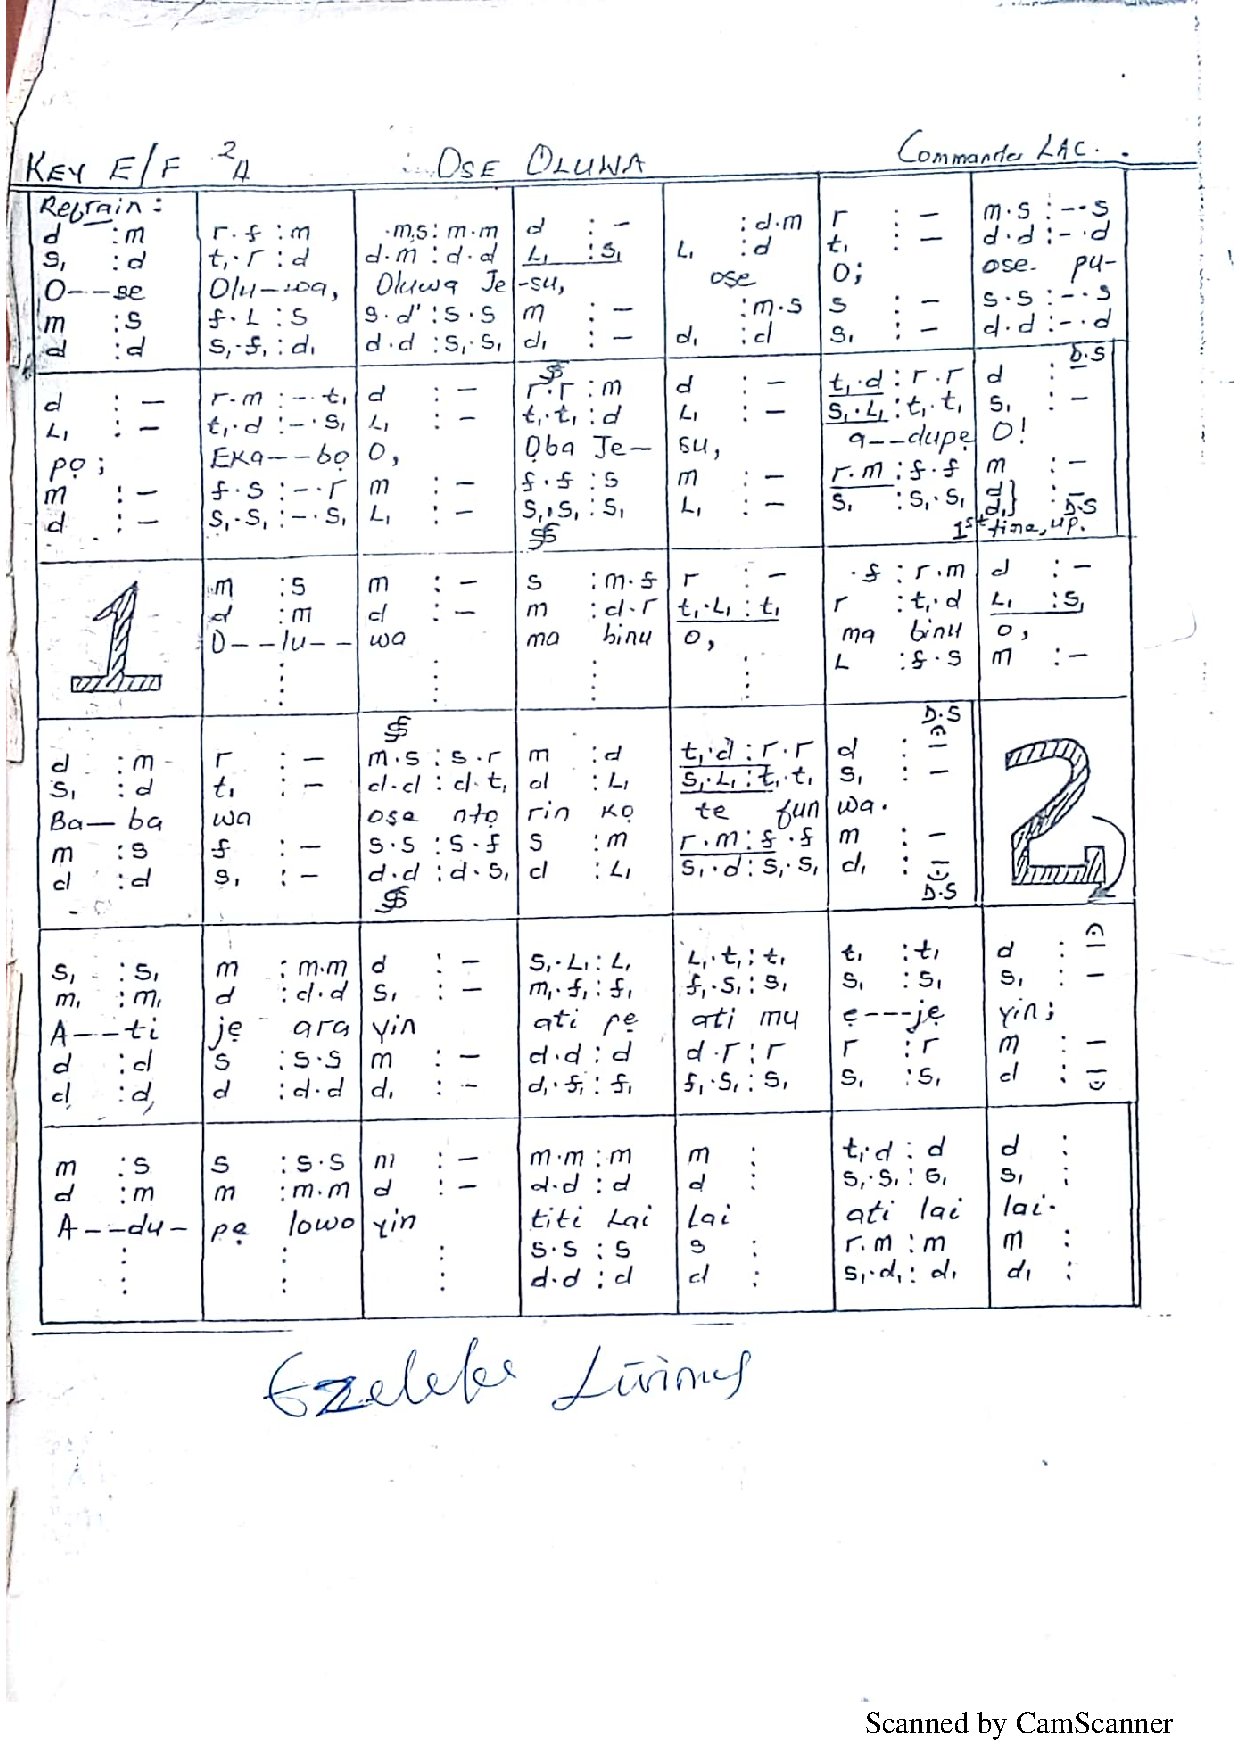 KEY E/F 2/4 OSE OLUWA Commander LAC.
Refrain:
d :m r.f :m .m,s: m.m d :- :d.m r :- m.s :-.s
s, :d t,.r :d d.m :d.d L, :s, L, :d t, :- d.d :-.d
O--se Olu-wa, Oluwa Je -su, ose O; ose. pu-
m :s f.L :s s.d' :s.s m :- :m.s s :- s.s :-.s
d :d s,.f, :d, d.d :s,.s, d, :- d, :d s, :- d.d :-.d
D.S
d :- r.m :-.t, d :- r.r :m d :- t,.d :r.r d :-
L, :- t,.d :-.s, L, :- t,.t, :d L, :- s,.L, :t,.t, s, :-
pọ; Eka--bọ O, Ọba Je- su, a--dupẹ O!
m :- f.s :-.r m :- f.f :s m :- r.m :f.f m :-
d :- s,.s, :-.s, L, :- s,.s, :s, L, :- s, :s,.s, d d,} :- D.S
1st time, up.
1 m :s m :- s :m.f r :- .f :r.m d :-
d :m d :- m :d.r t,.L, :t, r :t,.d L, :s,
O--lu-- wa ma binu o, ma binu o,
: : : : L :f.s m :-
D.S
d :m r :- m.s :s.r m :d t,.d :r.r d :-
s, :d t, :- d.d :d.t, d :L, s,.L, :t,.t, s, :- 2
Ba-ba wa ose ntọ rin kọ te fun wa.
m :s f :- s.s :s.f s :m r.m :f.f m :-
d :d s, :- d.d :d.s, d :L, s,.d :s,.s, d, :-
D.S
s, :s, m :m.m d :- s,.L, :L, L,.t, :t, t, :t, d :-
m, :m, d :d.d s, :- m,.f, :f, f,.s, :s, s, :s, s, :-
A--ti jẹ ara yin ati pẹ ati mu ẹ---jẹ yin;
d :d s :s.s m :- d.d :d d.r :r r :r m :-
d, :d, d :d.d d, :- d,.f, :f, f,.s, :s, s, :s, d :-
m :s s :s.s m :- m.m :m m : t,.d :d d :
d :m m :m.m d :- d.d :d d : s,.s, :s, s, :
A--du- pẹ lowo yin titi Lai lai ati lai lai.
: : : s.s :s s : r.m :m m :
: : : d.d :d d : s,.d, :d, d, :
Ezeleke Livinus
Scanned by CamScanner